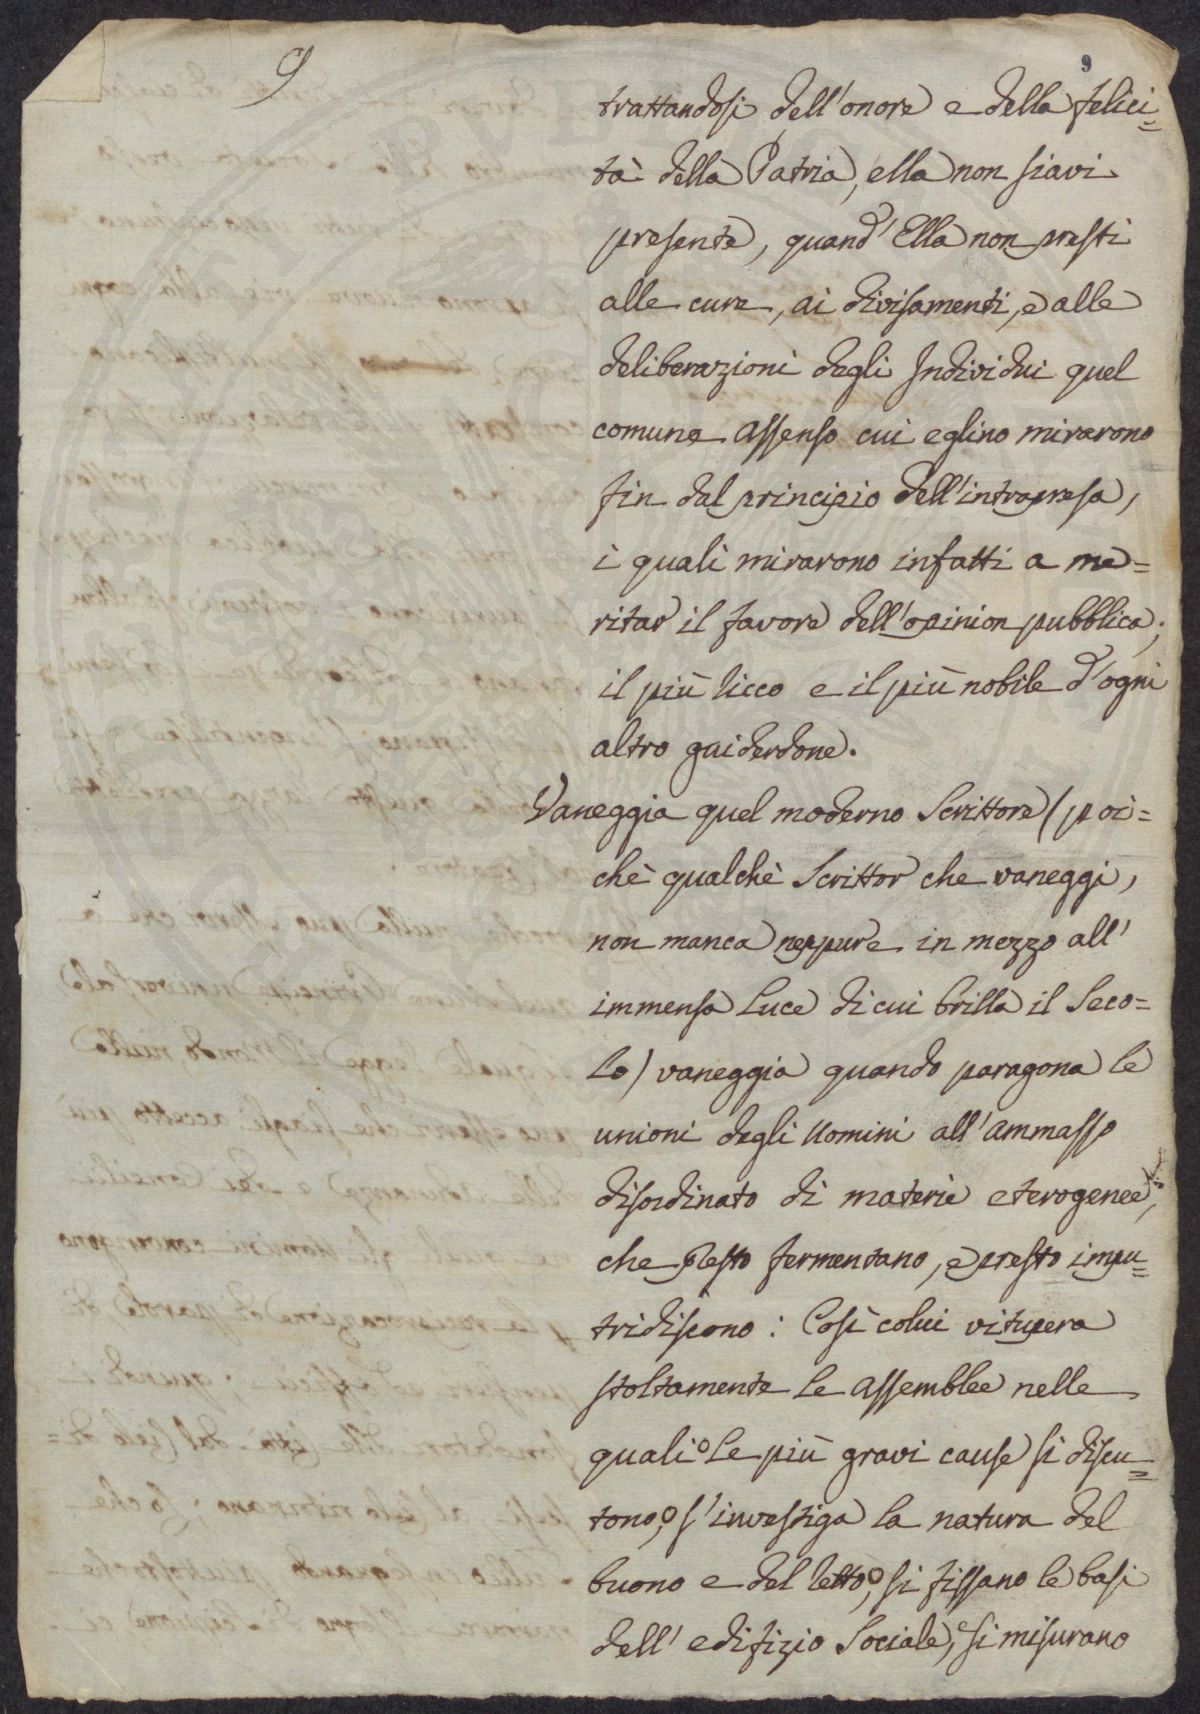 9
9
trattandosi dell'onore e della felici=
tà della Patria, ella non siavi
presente, quand'Ella non presti
alle cure, ai divisamenti, e alle
deliberazioni degli Individui quel
comune assenso cui eglino mirarono
fin dal principio dell'intrapresa,
i quali mirarono infatti a me=
ritar il favore dell'opinion pubblica,
il più licco e il più nobile d'ogni
altro guiderdone.
Vaneggia quel moderno Scrittore (poi=
chè qualchè Scrittor che vaneggi,
non manca neppure in mezzo all'
immensa Luce di cui brilla il Seco=
lo) vaneggia quando paragona le
unioni degli Uomini all'ammasso
disordinato di materie eterogenee,
che presto fermentano, e presto impu=
tridiscono: Così colui vitupera
stoltamente le assemblee nelle
quali le più gravi cause si discu=
tono, s'investiga la natura del
buono e del retto, si fissano le basi
dell'edifizio Sociale, si misurano